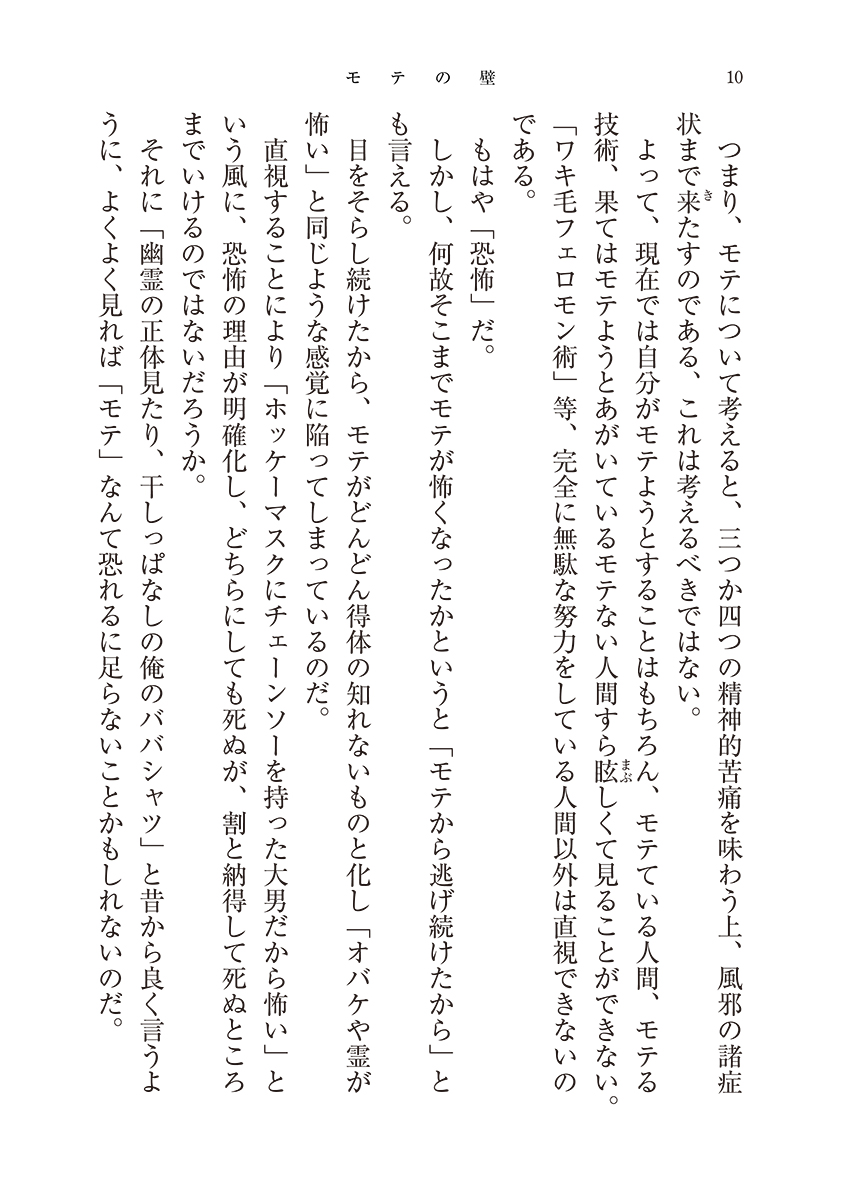 モテの壁
10
つまり、モテについて考えると、三つか四つの精神的苦痛を味わう上、風邪の諸症
状まで来たすのである、これは考えるべきではない。
き
よって、現在では自分がモテようとすることはもちろん、モテている人間、モテる
技術、果てはモテようとあがいているモテない人間すら眩しくて見ることができない。
まぶ
「ワキ毛フェロモン術」等、完全に無駄な努力をしている人間以外は直視できないの
である。
もはや「恐怖」だ。
しかし、何故そこまでモテが怖くなったかというと「モテから逃げ続けたから」と
も言える。
目をそらし続けたから、モテがどんどん得体の知れないものと化し「オバケや霊が
怖い」と同じような感覚に陥ってしまっているのだ。
直視することにより「ホッケーマスクにチェーンソーを持った大男だから怖い」と
いう風に、恐怖の理由が明確化し、どちらにしても死ぬが、割と納得して死ぬところ
までいけるのではないだろうか。
それに「幽霊の正体見たり、干しっぱなしの俺のババシャツ」と昔から良く言うよ
うに、よくよく見れば「モテ」なんて恐れるに足らないことかもしれないのだ。